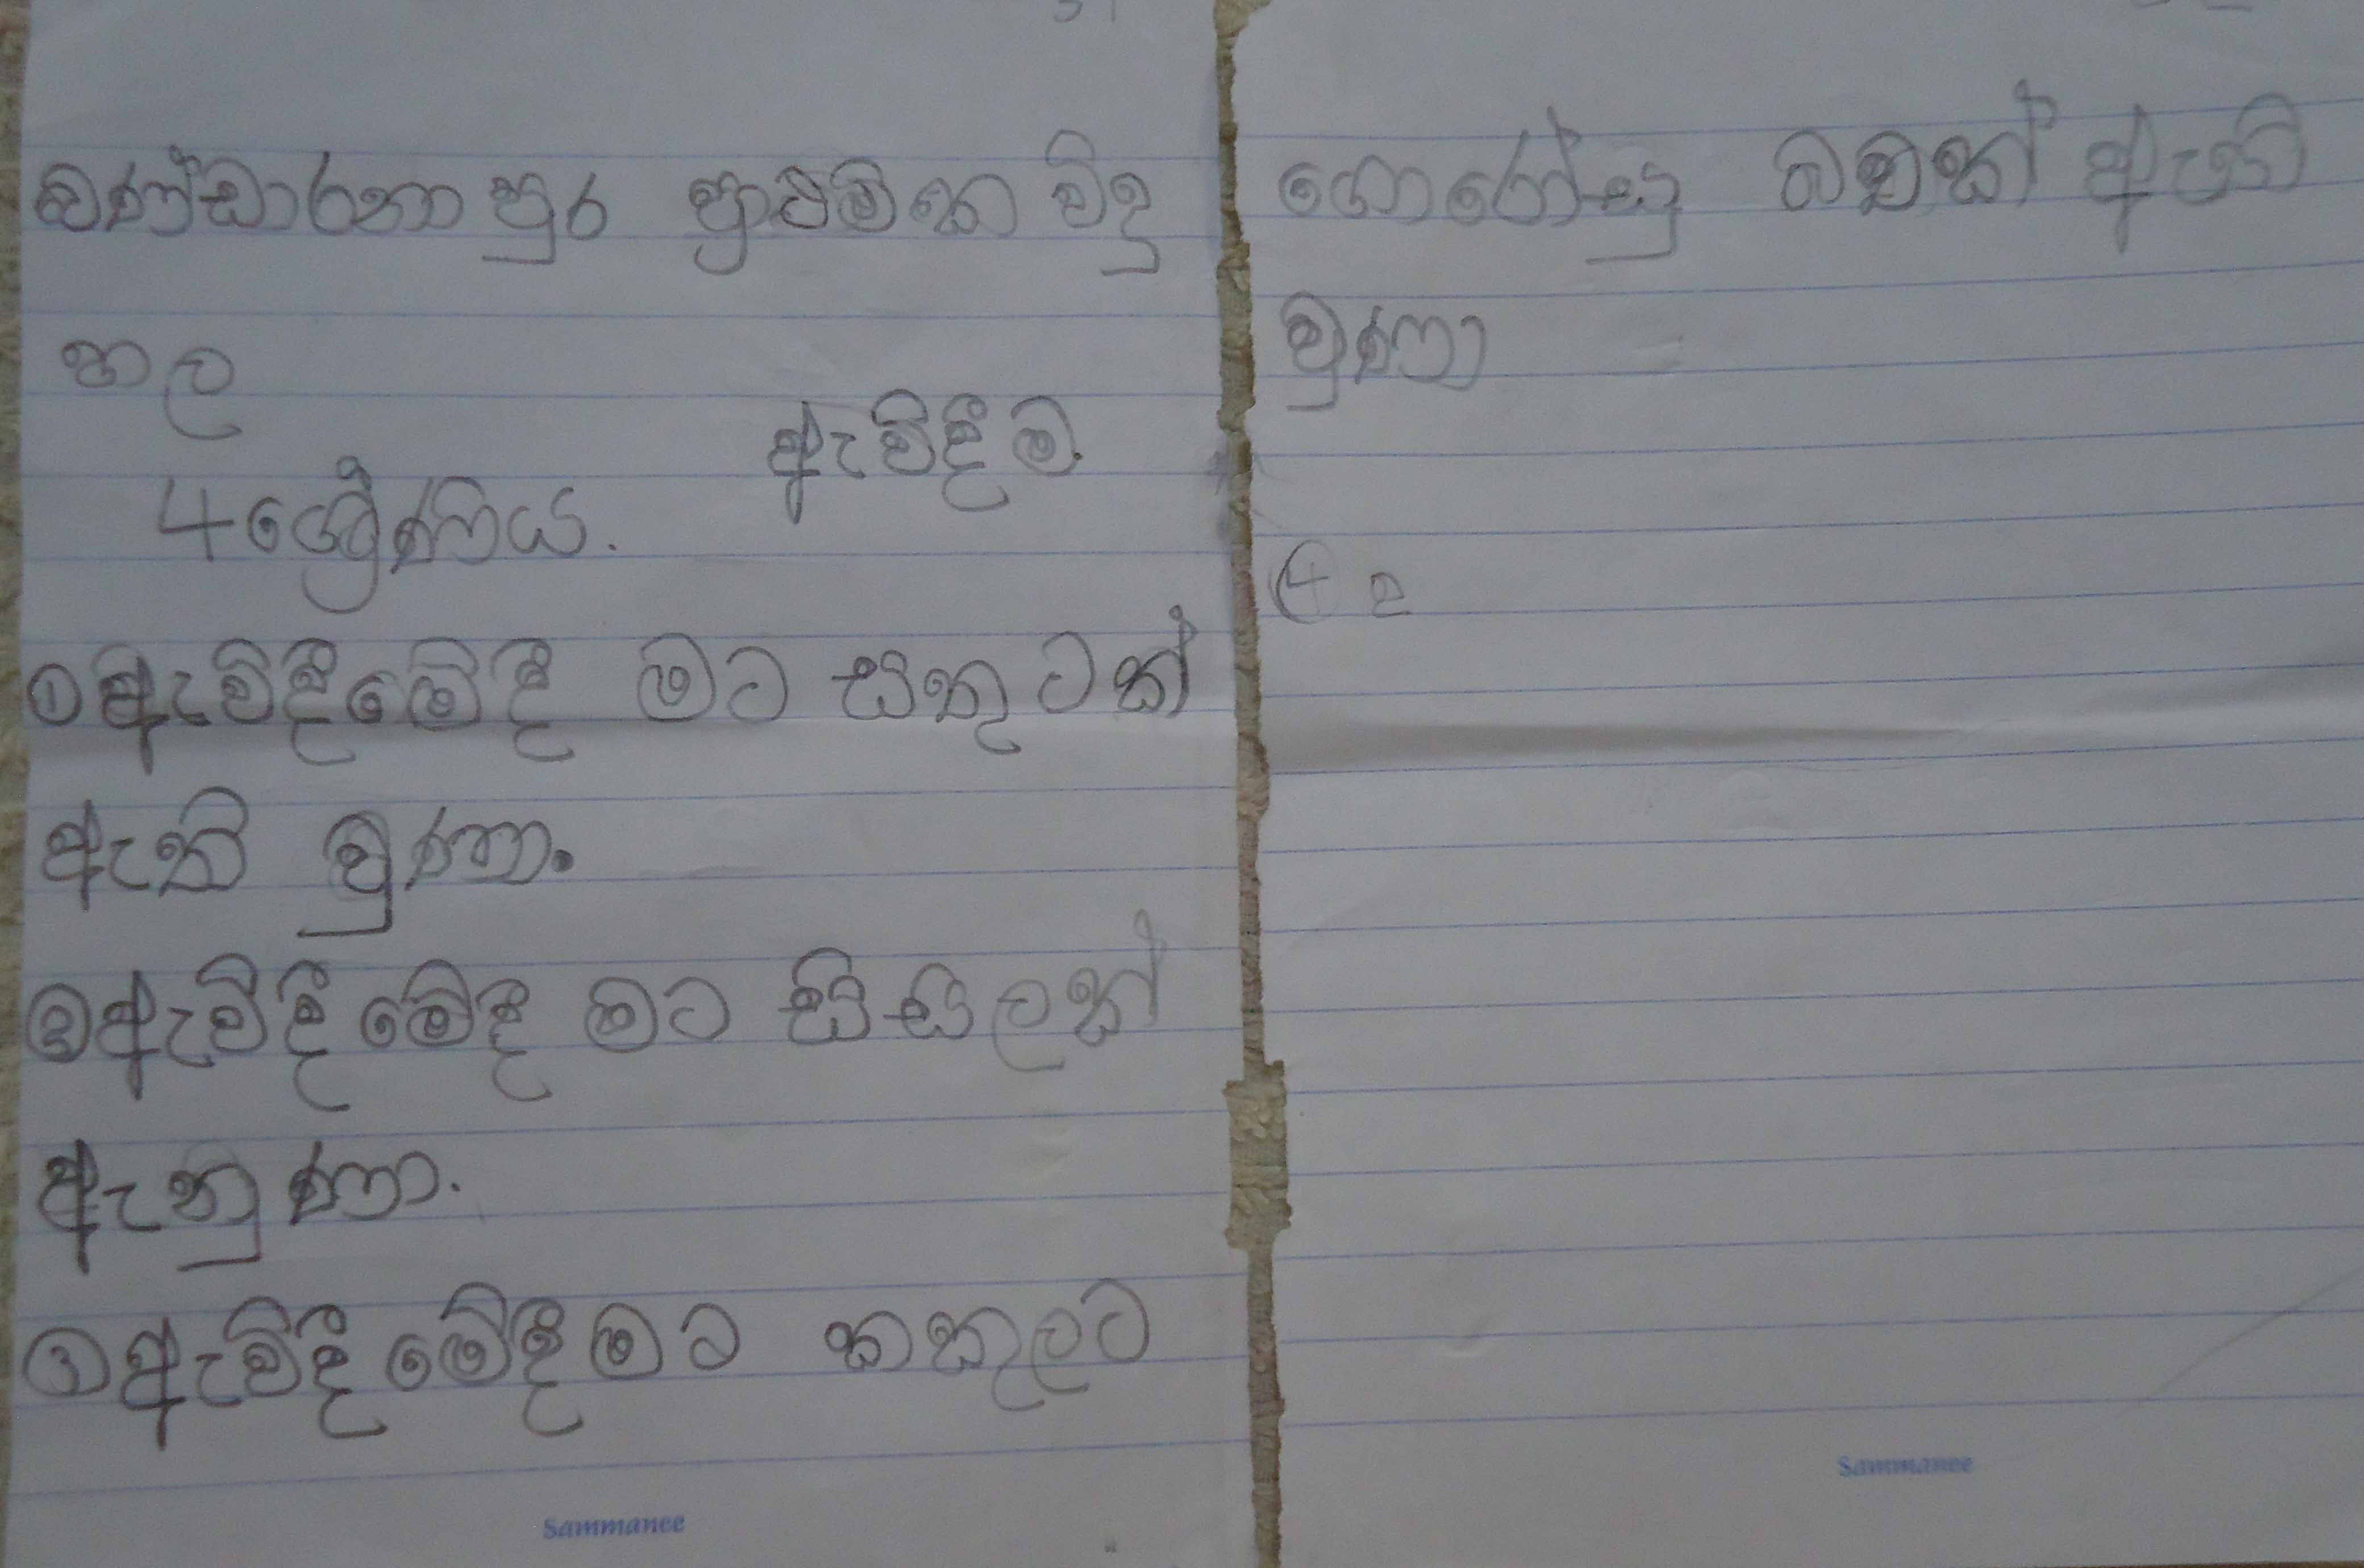 බණ්ඩාරනාපුර ප්‍රාථමික විදු
හල
ඇවිදීම.
4 ශ්‍රේණිය.
① ඇවිදීමේදී මට සතුටක්
ඇති වුණා.
② ඇවිදීමේදී මට සිසිලක්
ඇනුණා.
③ ඇවිදීමේදී මට කකුලට
Sammanee
ගොරෝසු බවක් ඇති
වුණා
Sammanee